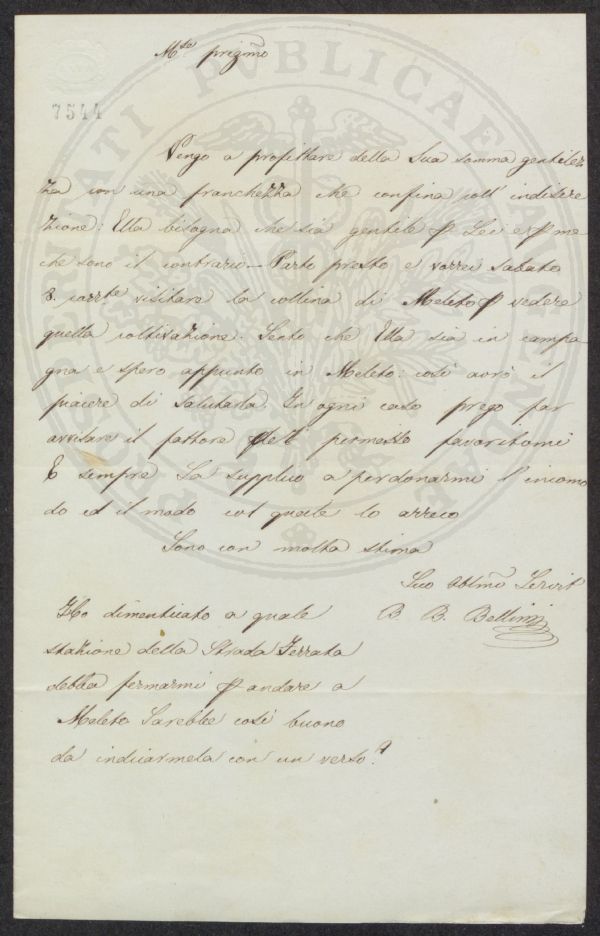 Mse pregmo
7544
Vengo a profittare della Sua somma gentilez
za con una franchezza che confina coll' indiscre
zione: Ella bisogna che sia gentile p Lei e p me
che sono il contrario – Parto presto e vorrei sabato
8. corrte visitare la collina di Meleto p vedere
quella coltivazione. Sento che Ella sia in campa
gna e spero appunto in Meleto: così avrò il
piacere di salutarla. In ogni caso prego far
avvisare il fattore del permesso favoritomi
E sempre La supplico a perdonarmi l'incomo
do ed il modo col quale lo arreco
Sono con molta stima
Suo obbmo Servit
B. B. Bellini
Ho dimenticato a quale
stazione della Strada Ferrata
debba fermarmi p andare a
Meleto Sarebbe così buono
da indicarmela con un verso?
PIO LENITATI PUBLICAE AGENDAE